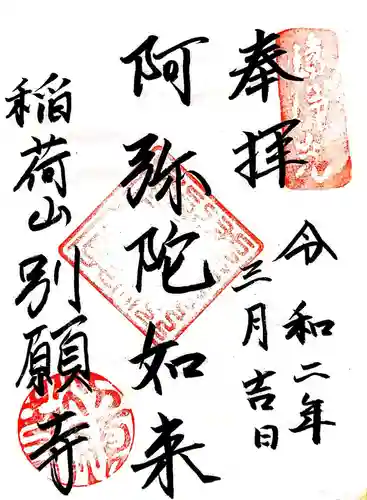 奉拝
令和二年
三月吉日
阿弥陀如来
稲荷山別願寺